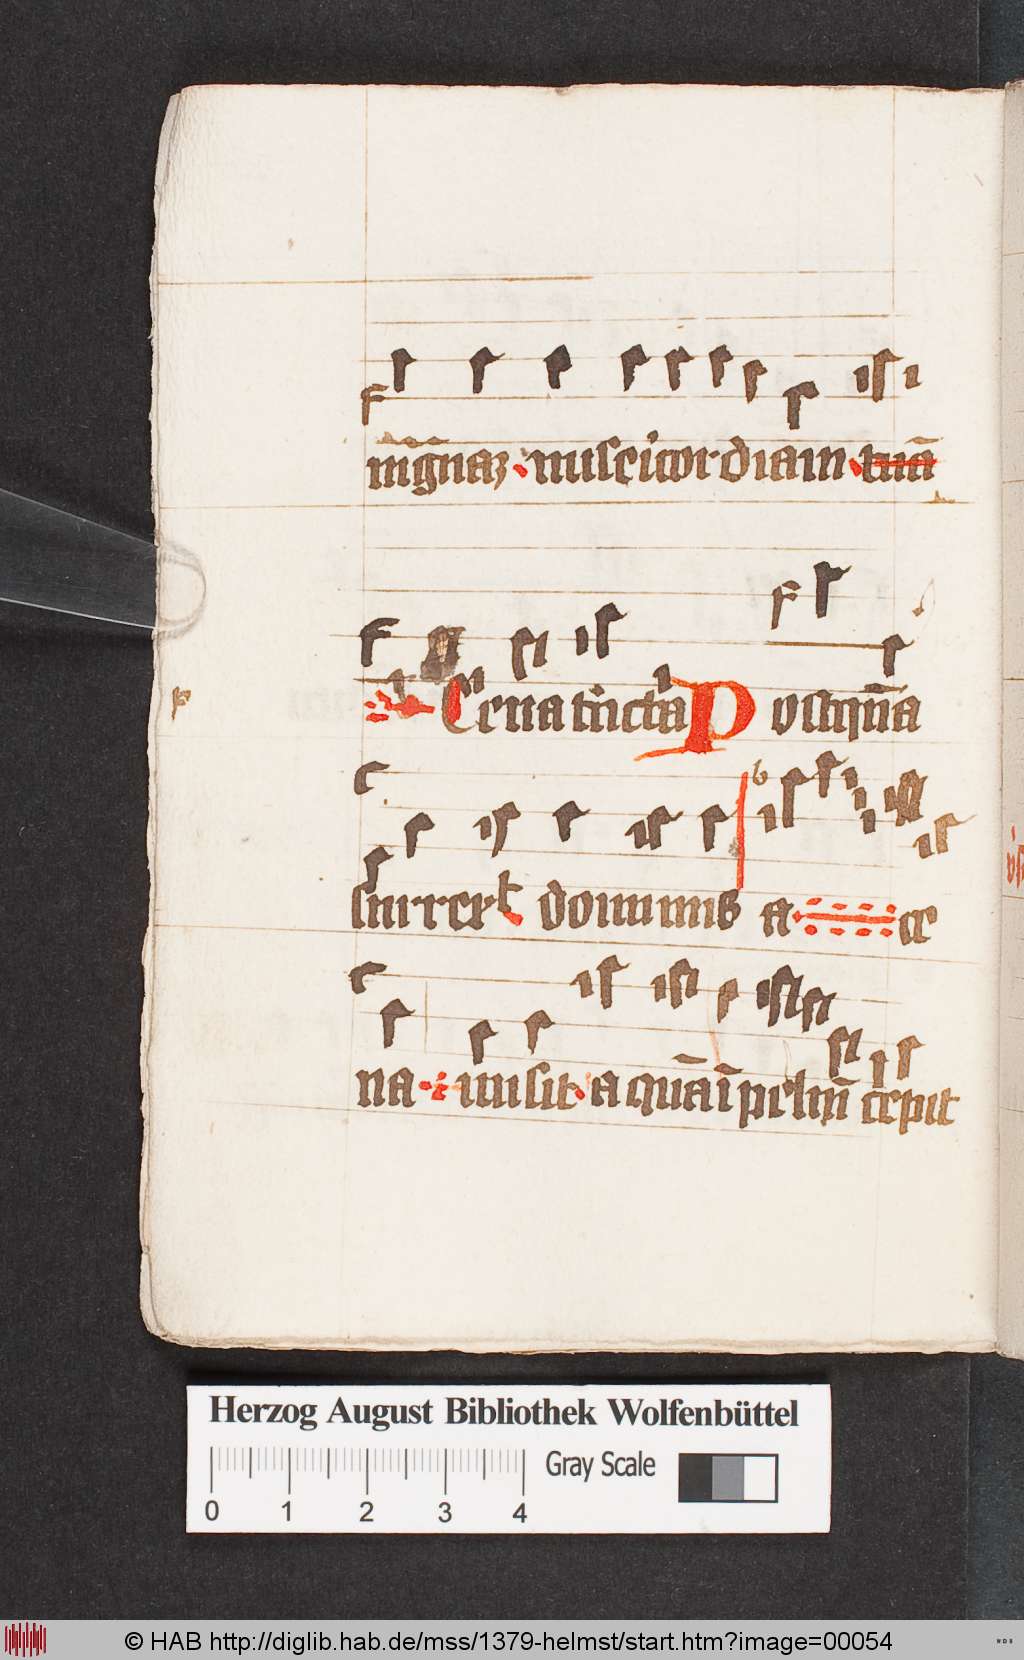 magnaȝ misericordiam tuā
Cena tūcta Postqua
surrexit dominus a ce
na misit aquā ī peluī cepit
Herzog August Bibliothek Wolfenbüttel
0 1 2 3 4 Gray Scale
© HAB http://diglib.hab.de/mss/1379-helmst/start.htm?image=00054